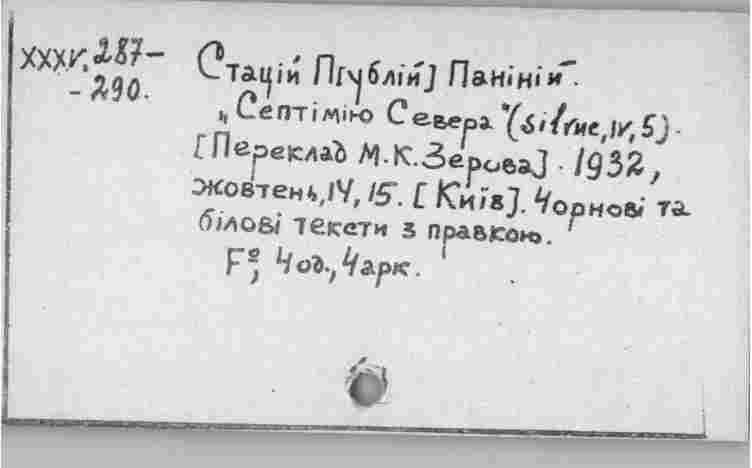 XXXV. 287–
- 290.
Стацій П[ублій] Паніній.
„Септімію Севера" (Silvue, IV, 5).
[Переклад М.К. Зерова]. 1932,
жовтень, 14, 15. [Київ]. Чорнові та
білові тексти з правкою.
F°, 4 од., 4 арк.